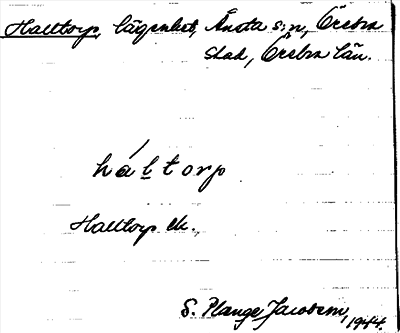 Halltorp, lägenhet, Ånsta s:n, Örebro
stad, Örebro län.
háḷtorp
Halltorp ek.,
S. Plange Jacobson, 1944.